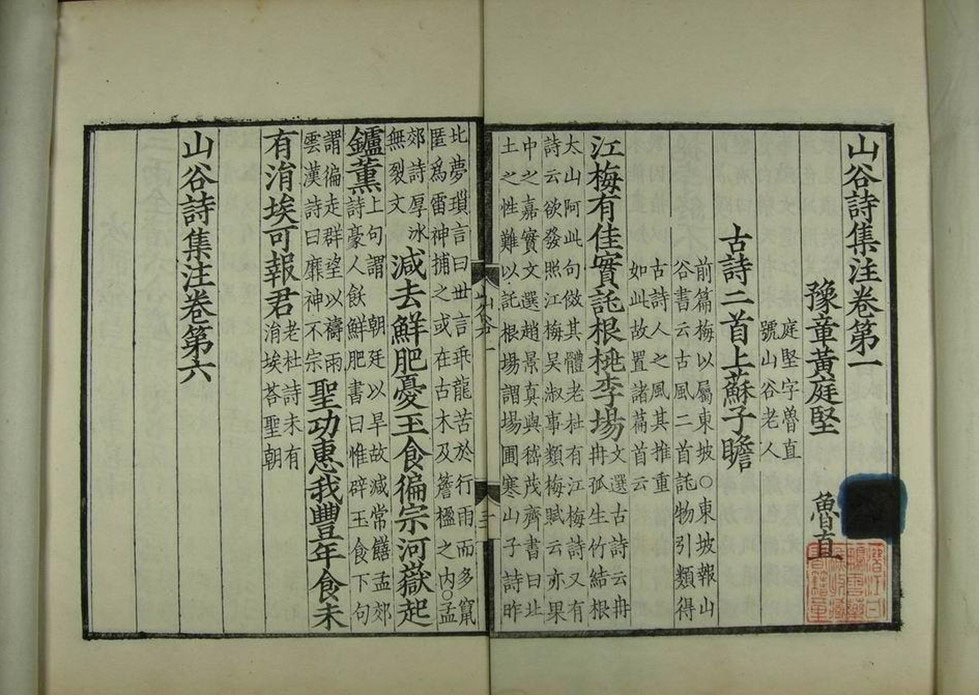 山谷詩集注卷第一
豫章黃庭堅
庭堅字魯直
號山谷老人
魯直
古詩二首上蘇子瞻
前篇梅以屬東坡○東坡報山
谷書云古風二首託物引類得
古詩人之風其推重
如此故置諸篇首云
江梅有佳實託根桃李場
文選古詩云冉
冉孤生竹結根
太山阿此句倣其體老杜有江梅詩又有
詩云欲發照江梅吴淑事類梅賦云亦果
中之嘉實文選趙景真與嵇茂齊書曰北
土之性難以託根場謂場圃寒山子詩昨
山谷一
三
比夢瑣言曰世言乖龍苦於行雨而多竄
匿爲雷神捕之或在古木及簷楹之内○孟
郊詩厚冰
無裂文
減去鮮肥憂玉食徧宗河嶽起
鑪薰
上句謂朝廷以旱故減常饍孟郊
詩豪人飲鮮肥書曰惟辟玉食下句
謂徧走群望以禱雨
雲漢詩曰靡神不宗
聖功惠我豐年食未
有涓埃可報君
老杜詩未有
涓埃荅聖朝
山谷詩集注卷第六